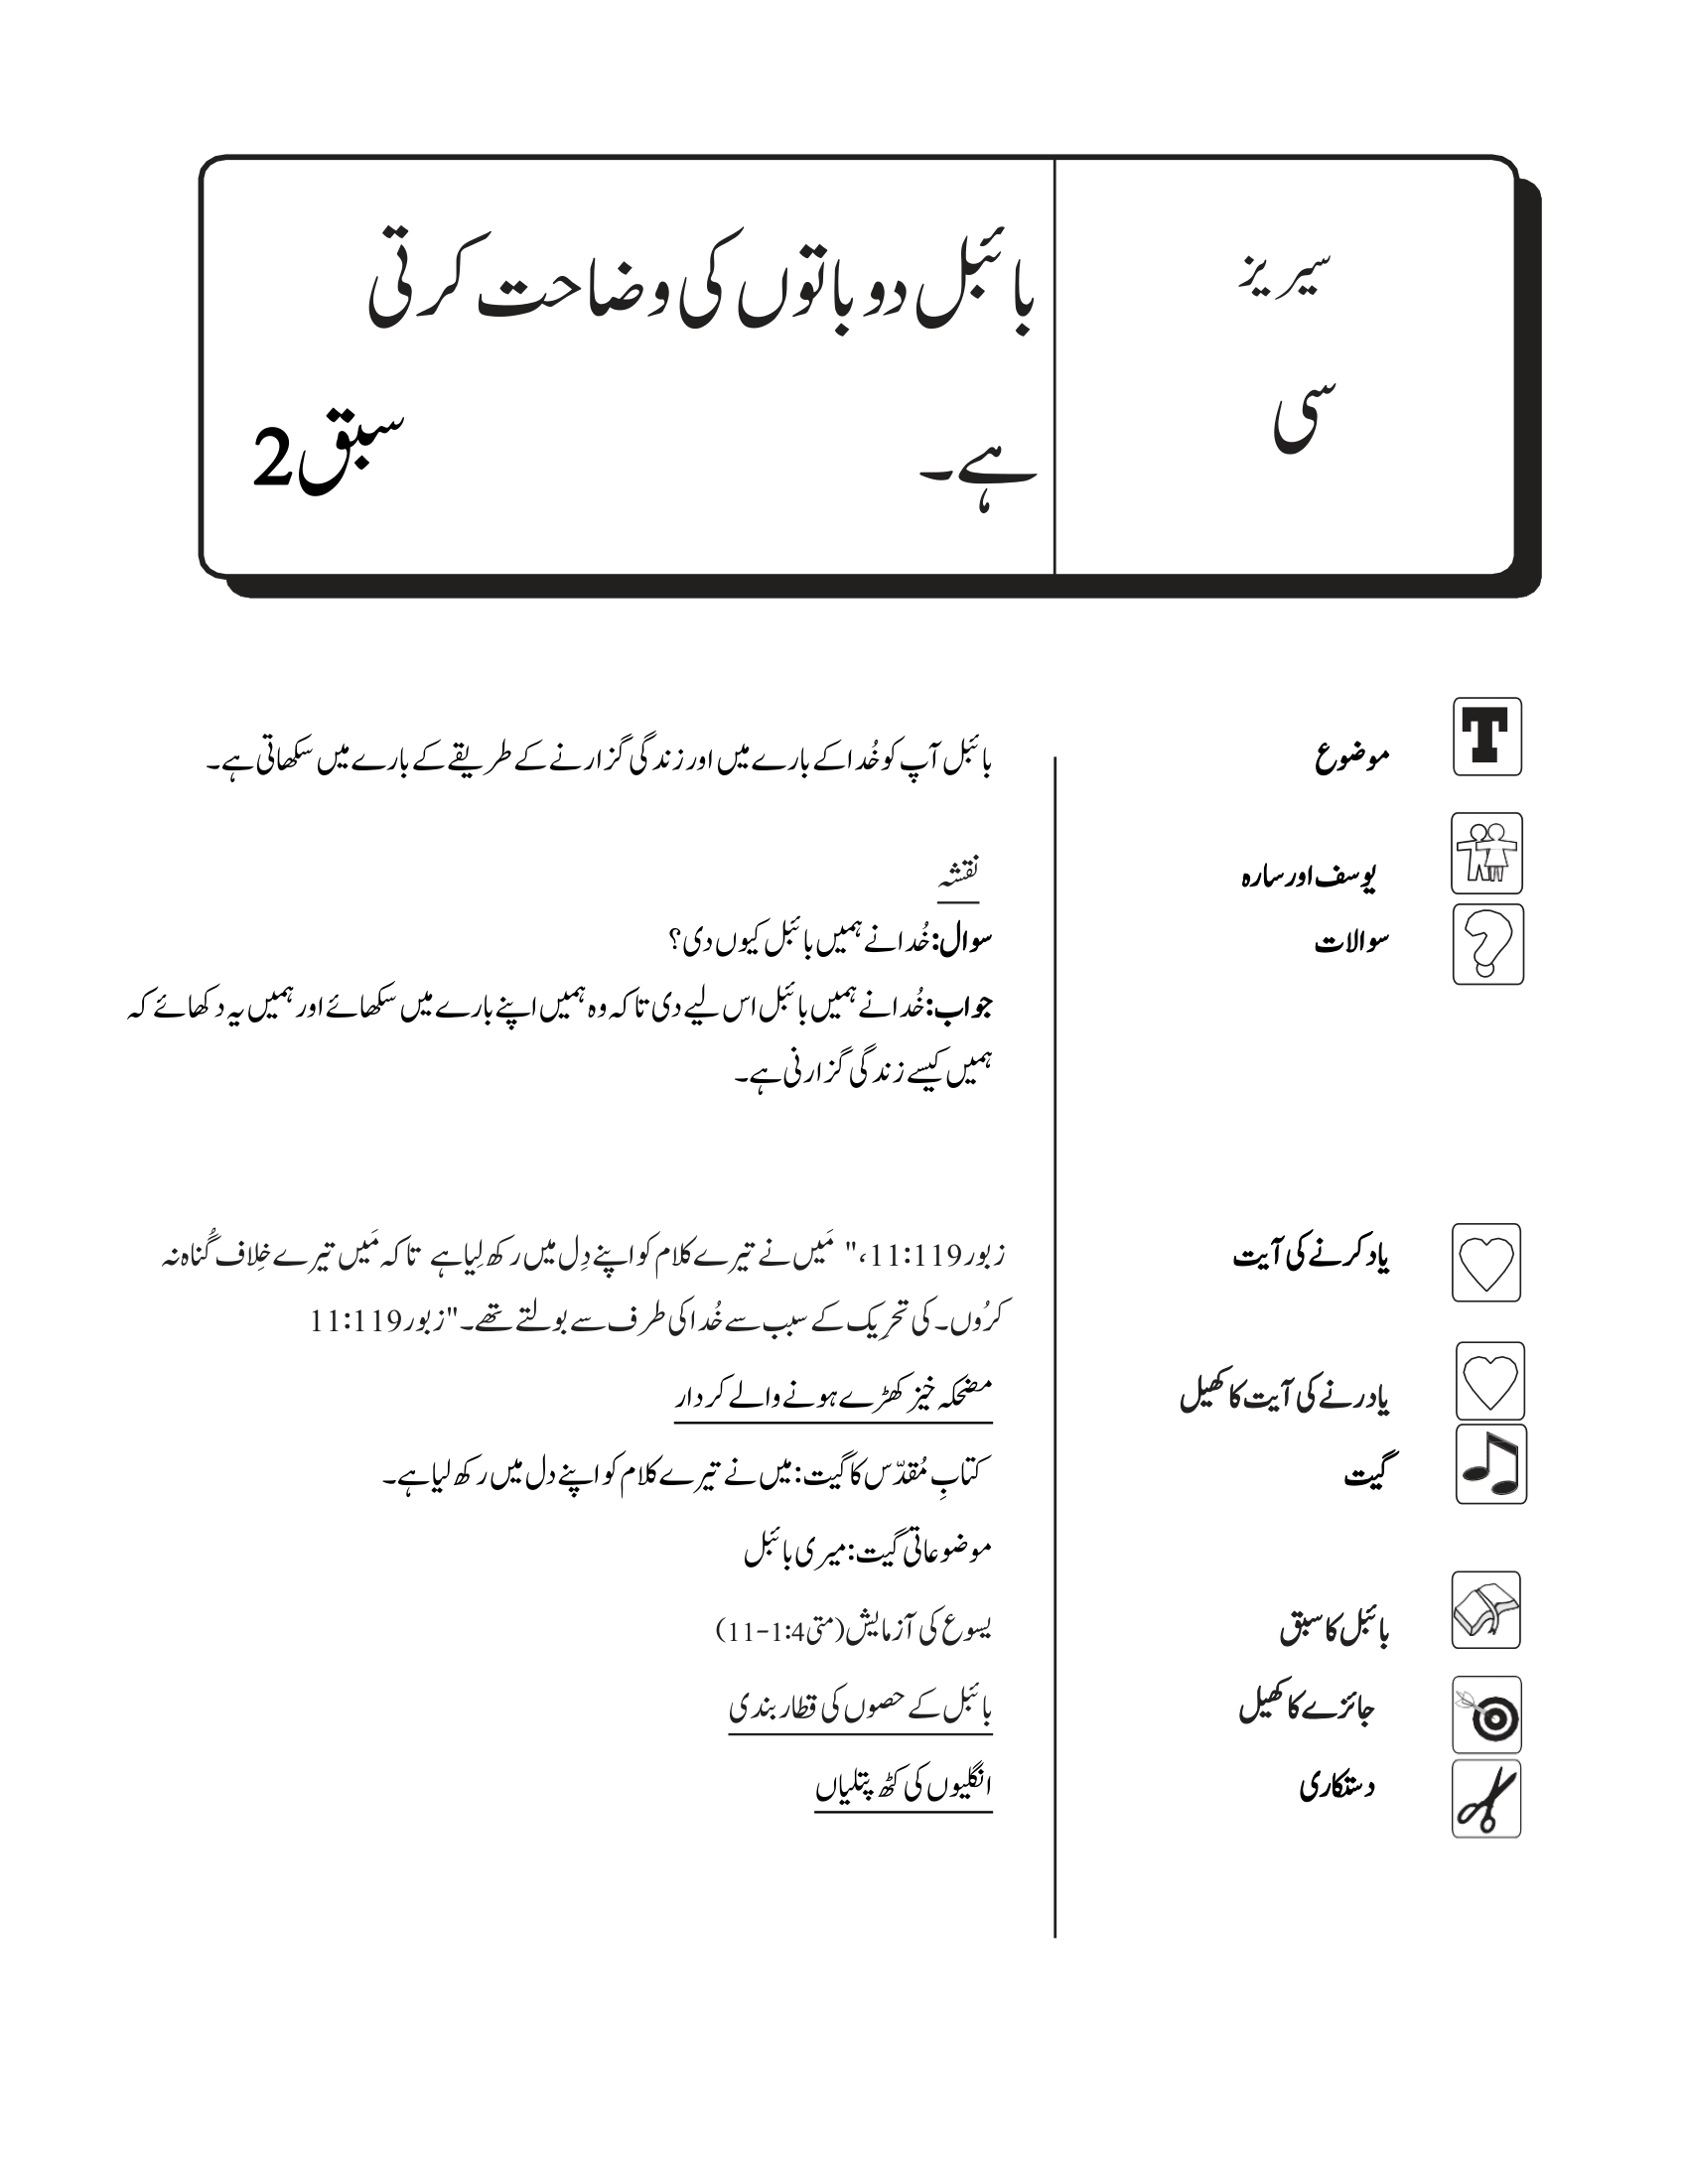 سیریز
سی
بائبل دو باتوں کی وضاحت کرتی
ہے۔ سبق 2
T
موضوع
بائبل آپ کو خُدا کے بارے میں اور زندگی گزارنے کے طریقے کے بارے میں سکھاتی ہے۔
یوسف اور سارہ
نقشہ
سوالات
سوال: خُدا نے ہمیں بائبل کیوں دی؟
جواب: خُدا نے ہمیں بائبل اس لیے دی تاکہ وہ ہمیں اپنے بارے میں سکھائے اور ہمیں یہ دکھائے کہ
ہمیں کیسے زندگی گزارنی ہے۔
یاد کرنے کی آیت
زبور 11:119، " مَیں نے تیرے کلام کو اپنے دِل میں رکھ لِیا ہے تاکہ مَیں تیرے خِلاف گُناہ نہ
کرُوں۔ کی تحرِیک کے سبب سے خُدا کی طرف سے بولتے تھے۔" زبور 11:119
یادرنے کی آیت کا کھیل
مضحکہ خیز کھڑے ہونے والے کردار
گیت
کتابِ مُقدّس کا گیت: میں نے تیرے کلام کو اپنے دل میں رکھ لیا ہے۔
موضوعاتی گیت: میری بائبل
بائبل کا سبق
یسوع کی آزمایش (متی 1:4-11)
جائزے کا کھیل
بائبل کے حصوں کی قطار بندی
دستکاری
انگلیوں کی کٹھ پتلیاں